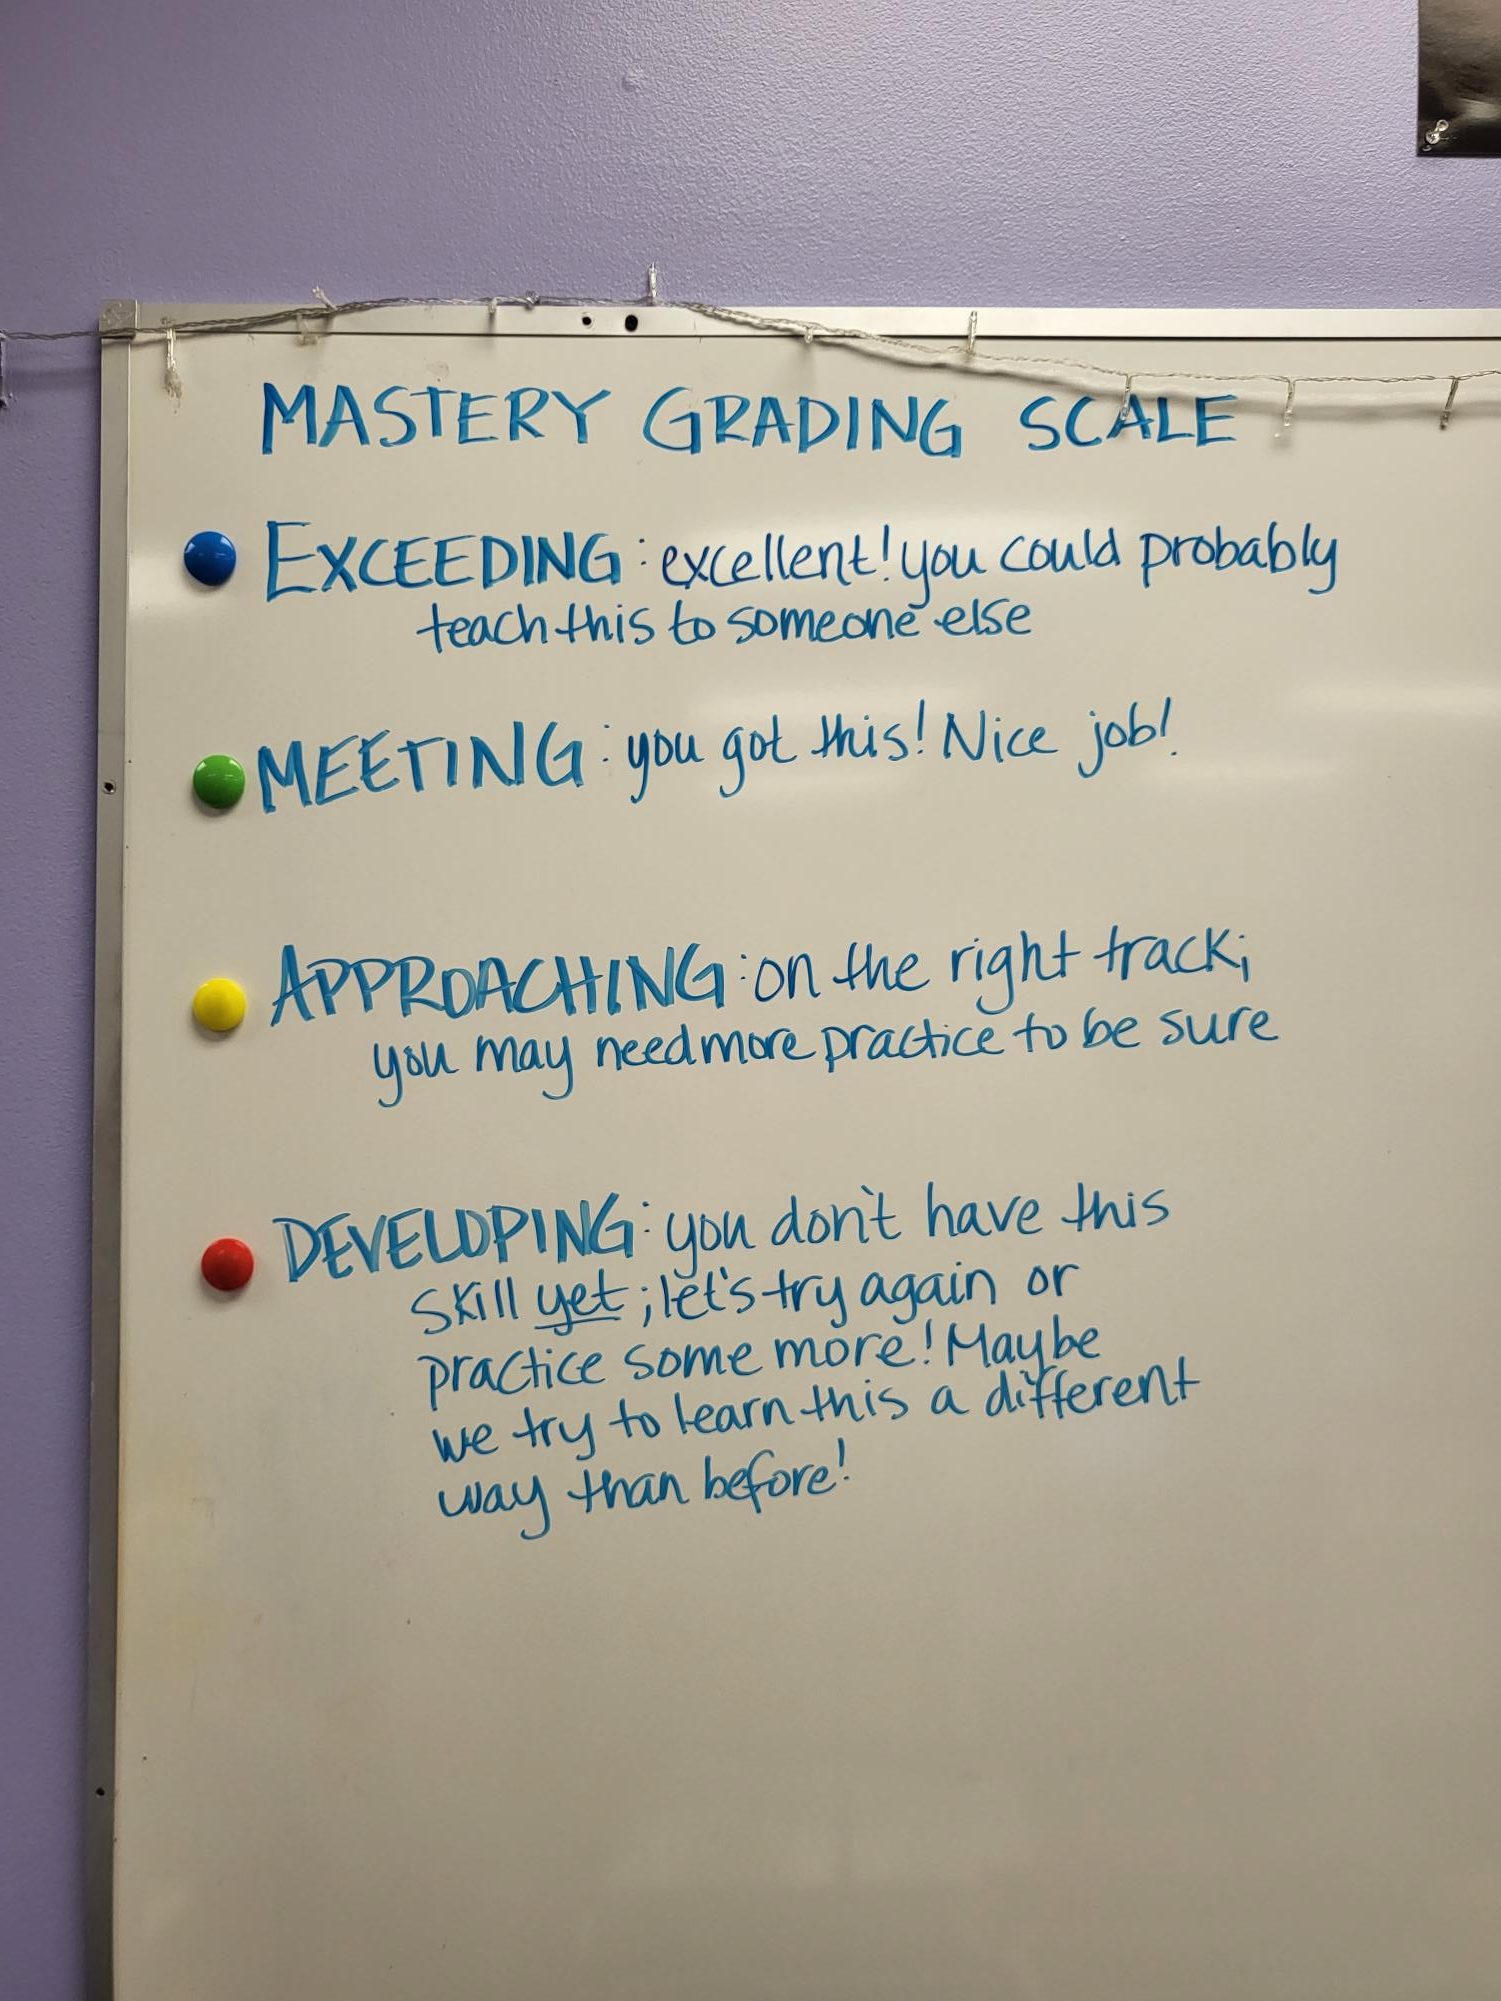 MASTERY GRADING SCALE
EXCEEDING: excellent! you could probably
teach this to someone else
MEETING: you got this! Nice job!
APPROACHING: on the right track;
you may need more practice to be sure
DEVELOPING: you don't have this
skill yet; let's try again or
practice some more! Maybe
we try to learn this a different
way than before!